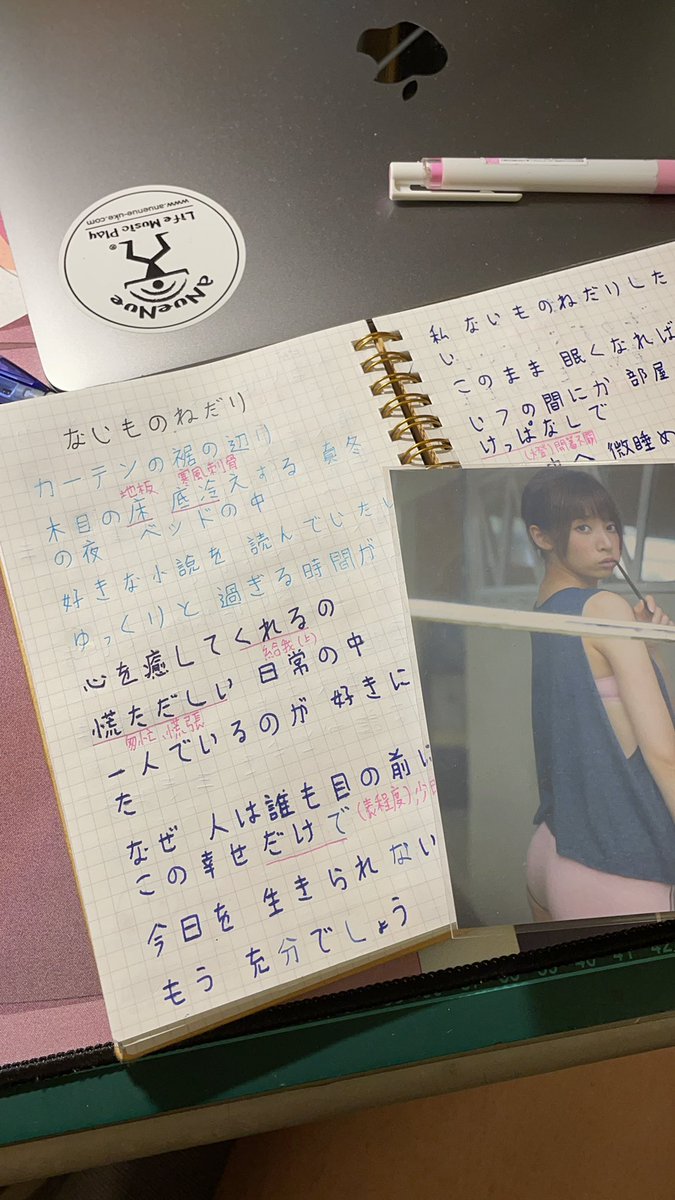 aNueNue
Life Music Play
®
www.anuenue-uke.com
ないものねだり
カーテンの裾の辺り
地板 寒風刺骨
木目の床 底冷えする 真冬
の夜 ベッドの中
好きな小説を 読んでいたい
ゆっくりと 過ぎる時間が
心を癒してくれるの
給我(上)
慌ただしい 日常の中
匆忙、慌張
一人でいるのが 好きに
た
なぜ 人は誰も目の前に
(表程度),少
この幸せだけで
今日を 生きられない
もう 充分でしょう
私 ないものねだりした
い
このまま 眠くなれば
いつの間にか 部屋
けっぱなしで
開著不關
微睡め
39 40 41 42